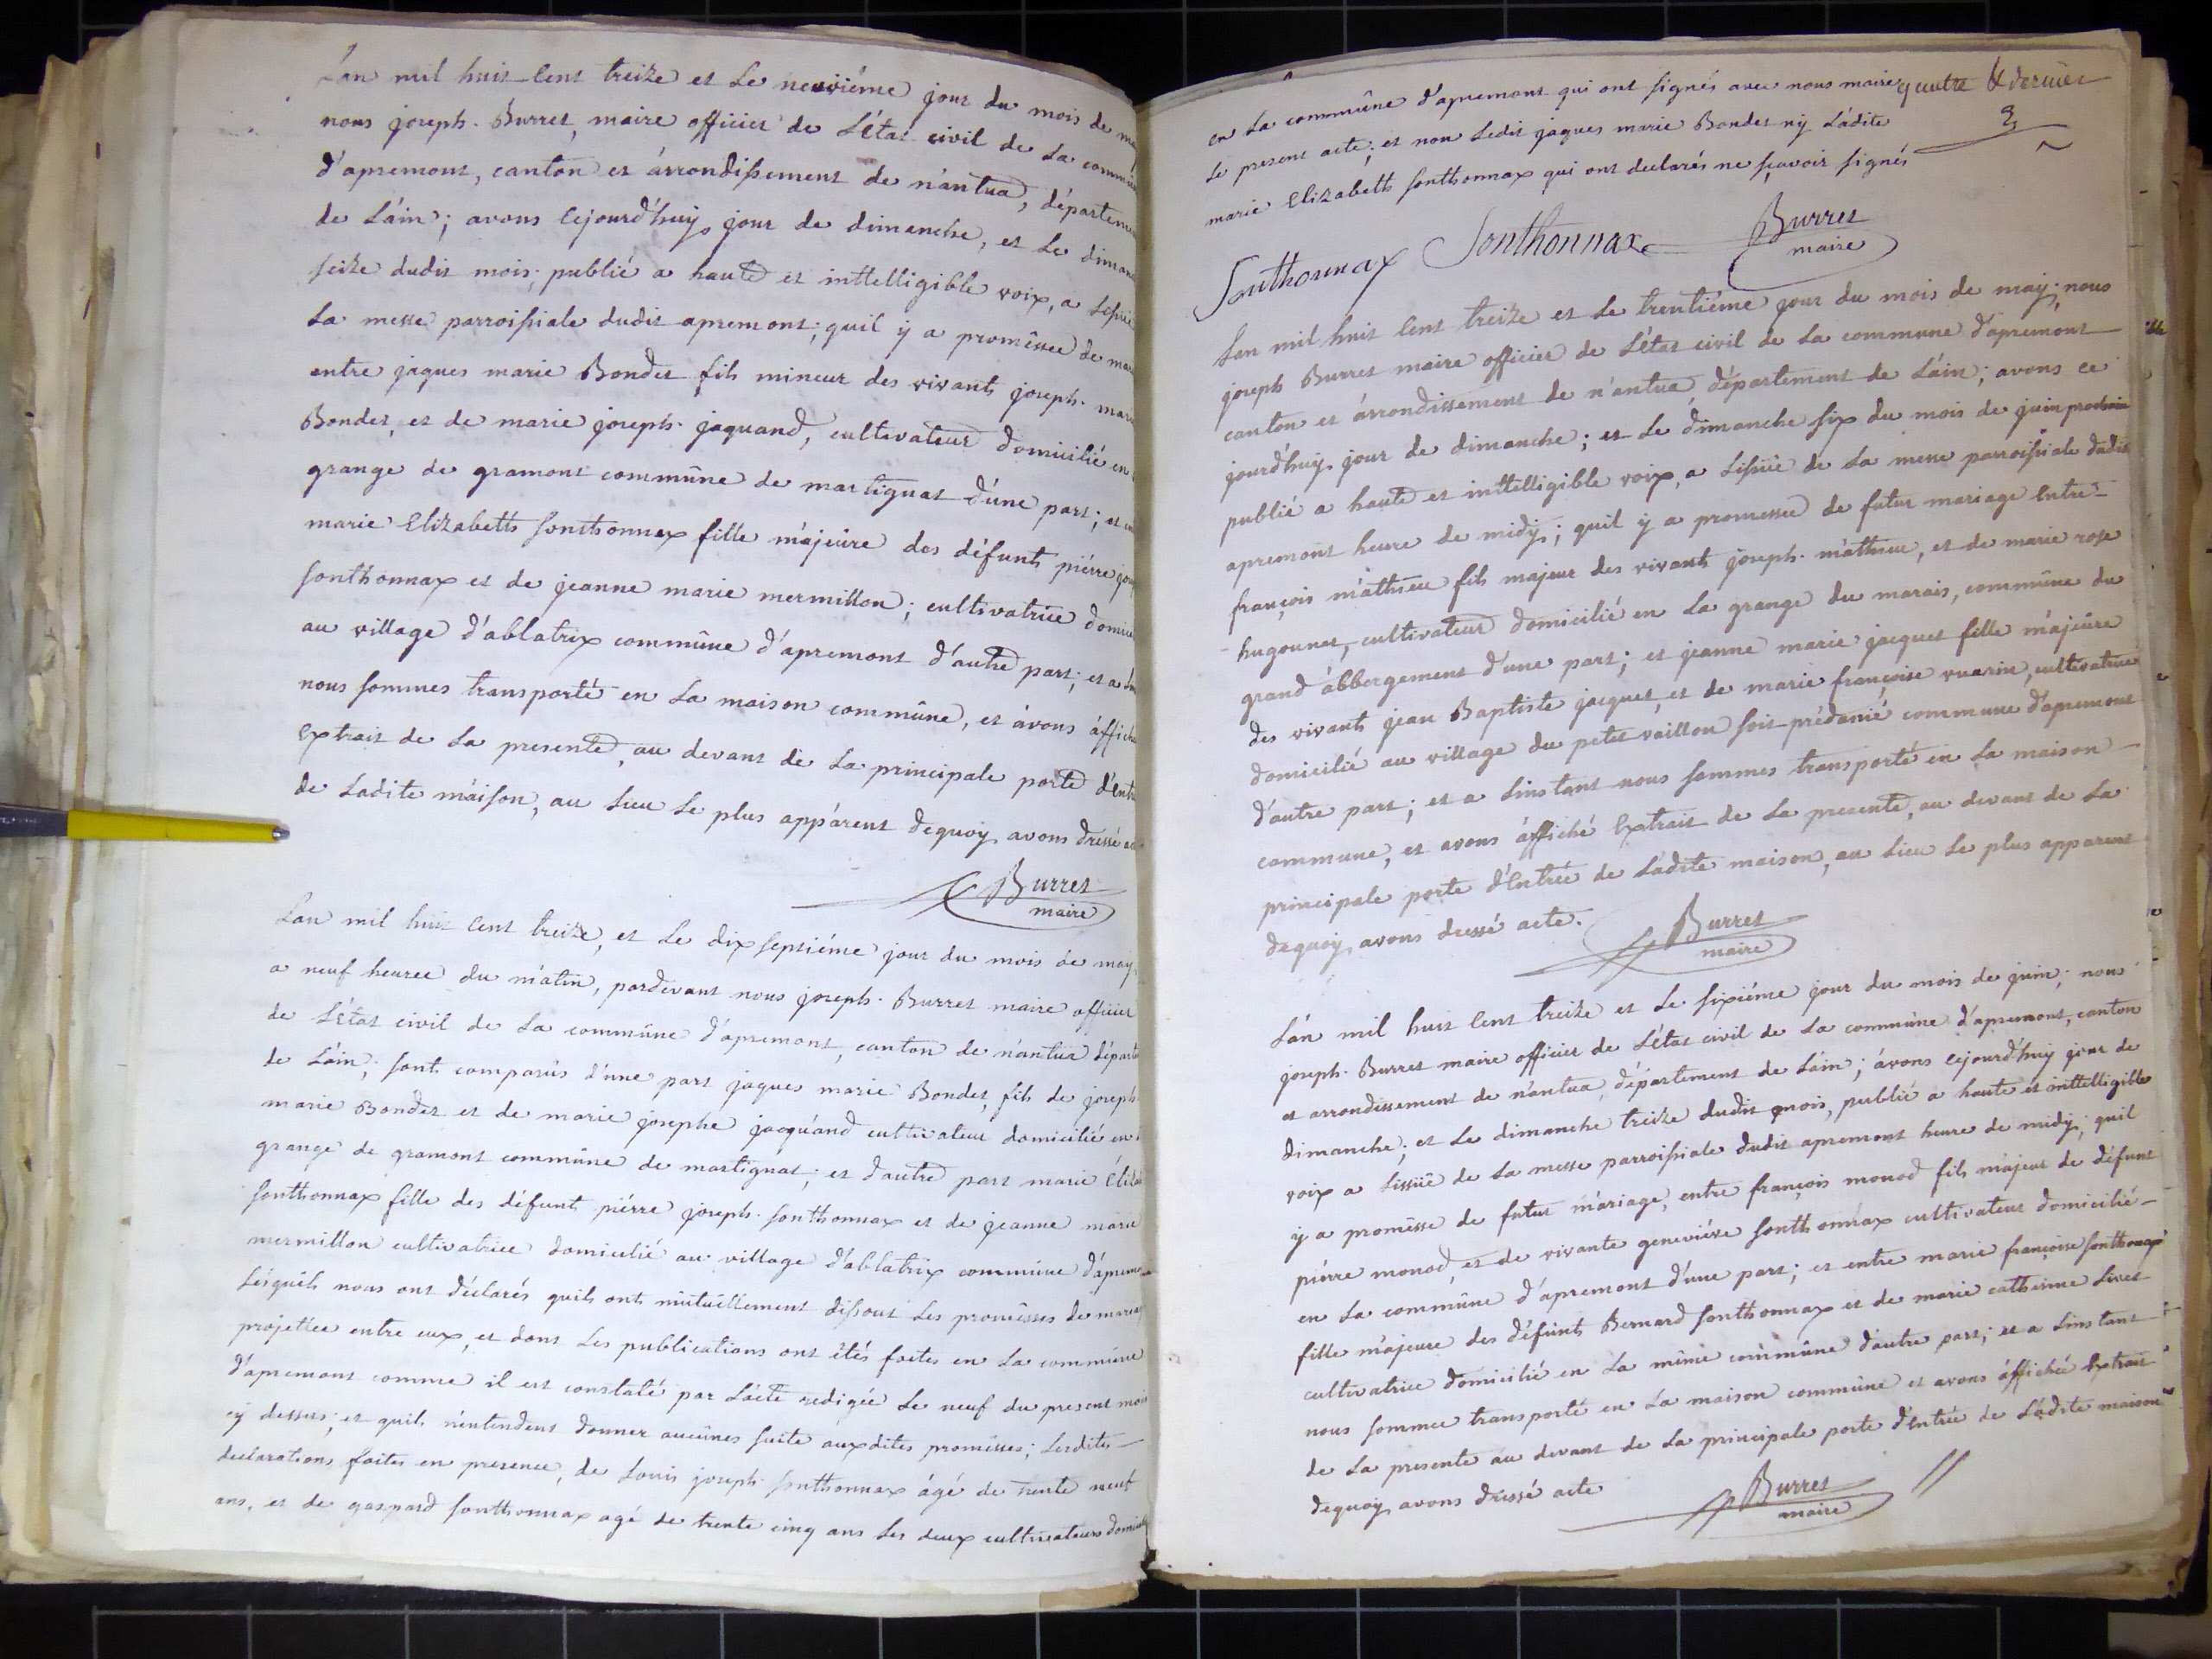 Lan mil huit Cent treize et Le neuviéme jour du mois de may
nous joseph Burret, maire officier de L'état civil de La commune
d'apremont, canton et árrondissement de nantua, départeme
de Láin; avons Cejourd'huy jour de dimanche, et Le diman
seize dudit mois; publié a haute et inttelligible voix, a Lissue
La messe parroissiale dudit apremont; quil y a promêsse de mar
entre jaques marie Bondet fils mineur des vivants joseph marie
Bondet, et de marie joseph jaquand, cultivateur domicilié en
grange de gramont commûne de martignat d'une part; et
marie Elizabeth Sonthonnax fille májeure des défunts piérre jos
Sonthonnax et de jeanne marie mermillon; cultivatrice domici
au village d'ablatrix commûne d'apremont d'autre part; et a
nous sommes transporté en La maison commûne, et ávons áffiché
Extrait de La presente, au devant de La principale porte d'entr
de Ladite máison, au Lieu Le plus appárent dequoy avons dressé
Burret
maire
Lan mil huit Cent treize, et Le dix septiéme jour du mois de may
a neuf heures du mátin, pardevant nous joseph Burret maire officier
de L'état civil de La commûne d'apremont, canton de nantua départe
de Láin; sont comparûs d'une part jaques marie Bondet, fils de joseph
marie Bondet et de marie josephe jacquánd cultivateur domicilié en
grange de gramont commûne de martignat; et d'autre part marie Eliza
Sonthonnax fille des défunts piérre joseph Sonthonnax et de jeanne marie
mermillon cultivatrice domicilié au village d'ablatrix commûne d'áprem
Lésquels nous ont déclarés quils ont mûtuéllement dissout Les promêsses de mariag
projettée entre eux, et dont Les publications ont étés faites en La commûne
d'apremont comme il est constaté par Lácte redigée Le neuf du present mois
cy dessus; et quils n'entendent donner aucûnes suite auxdites promêsses; Lesdites
declarations faites en presence, de Louis joseph Sonthonnax ágé de trente neuf
ans, et de gaspard Sonthonnax agé de trente cinq ans Les deux cultivateurs domicilié
en La commûne d'apremont qui ont signés avec nous maire
quatre & dernier
Le present acte; et non Ledit jaques marie Bondet ny Ládite
marie Elizabeth Sonthonnax qui ont declarés ne sçavoir signés
Sonthonnax Sonthonnax Burret
maire
Lan mil huit Cent treize et Le trentiéme jour du mois de may; nous
joseph Burret maire officier de L'état civil de La commune d'apremont
canton et árrondissement de nantua, département de Láin; avons ce
jourd'huy jour de dimanche; et Le dimanche six du mois de juin prochain
publié a haute et inttelligible voix, a Lissüe de La messe parroissiale dudit
apremont heure de midy; quil y a promesse de futur mariage Entre
françois máthieu fils majeur des vivants joseph máthieu, et de marie rose
hugounet, cultivateur domicilié en La grange du marais, commûne du
grand ábbergement d'une part; et jeanne marie jacquet fille májeûre
des vivants jean Baptiste jacquet, et de marie françoise vuarin, cultivatrice
domicilié au village du petit vaillon soit prédanié commune d'apremont
d'autre part; et a Linstant nous sommes transporté en La maison
commune, et avons áffiché Extrait de La presente, au devant de La
principale porte d'Entrée de Ládite maison, au Lieu Le plus apparent
dequoy avons dressé acte.
Burret
maire
Lán mil huit Cent treize et Le sixiéme jour du mois de juin; nous
joseph Burret maire officier de L'état civil de La commûne d'apremont, canton
et arrondissement de nantua, département de Láin; ávons Cejourd'huy jour de
dimanche; et Le dimanche treize dudit mois, publié a haute et inttelligible
voix a Lissüe de La messe parroissiale dudit apremont heure de midy; quil
y a promêsse de futur máriage, entre françois monod fils májeur de défunt
piérre monod, et de vivante geneviéve Sonthonnax cultivateur domicilié
en La commûne d'apremont d'une part; et entre marie françoise Sonthonnax
fille májeure des défunts Bernard Sonthonnax et de marie catherine Livet
cultivatrice domicilié en La même commûne d'autre part; et a Linstant
nous sommes transporté en La maison commûne et avons áffiché Extrait
de La presente au devant de La principale porte d'Entrée de Ládite maison
dequoy avons dréssé acte
Burret
maire